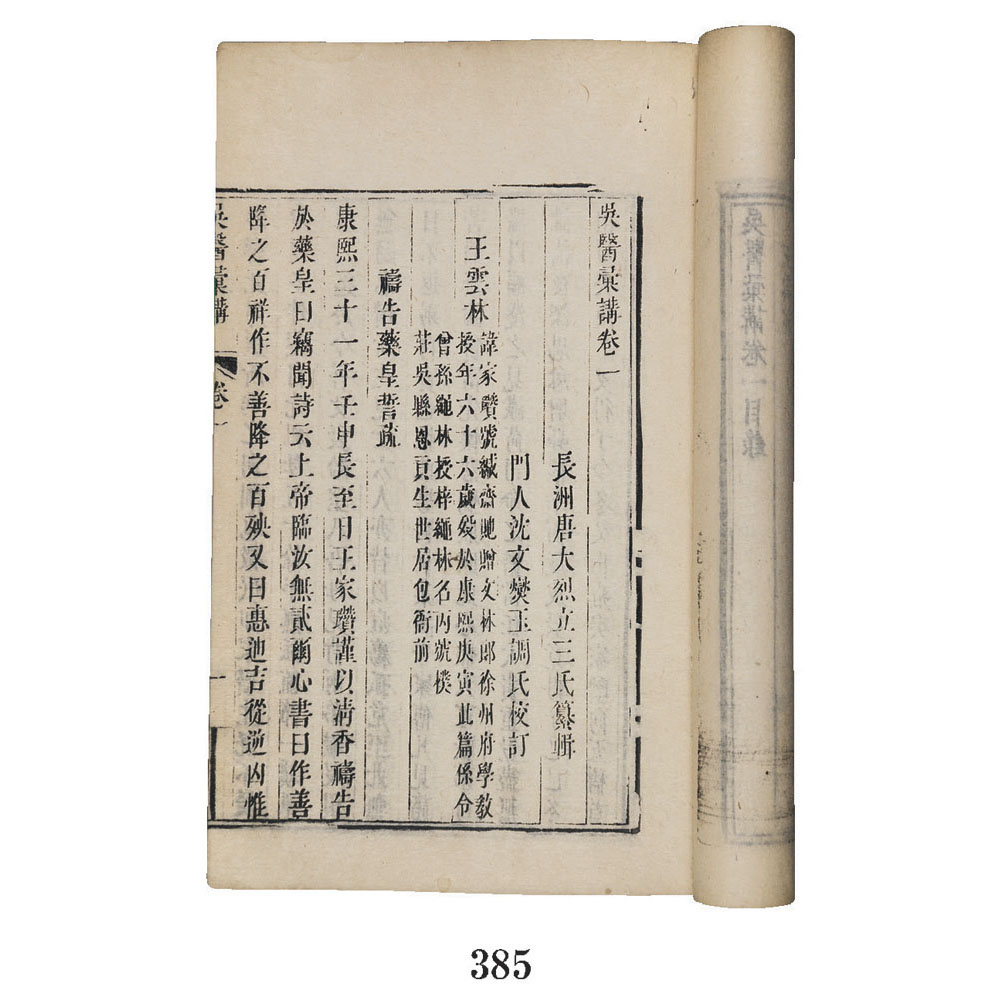 吳醫彙講卷一
長洲唐大烈立三氏纂輯
門人沈文燮玉調氏校訂
王雲林
諱家瓚號緘齋貤贈文林郎徐州府學教
授年六十六歲歿於康熙庚寅此篇係令
曾孫繩林授梓繩林名丙號樸
莊吳縣恩貢生世居包衙前
禱告藥皇誓疏
康熙三十一年壬申長至日王家瓚謹以淸香禱告
於藥皇曰竊聞詩云上帝臨汝無貳爾心書曰作善
降之百祥作不善降之百殃又曰惠迪吉從逆凶惟
吳醫彙講
卷一
一
吳醫彙講卷一目錄
385